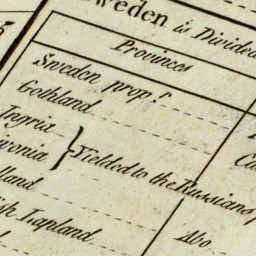 Sweden is Divided
Provinces
Sweden prop.r
Gothland
Ingria
Yielded to the Russians
Lapland
Abo